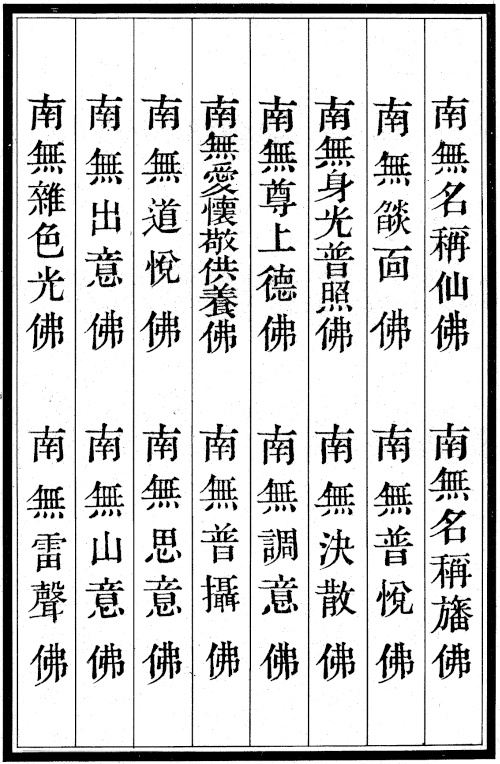 南無名稱仙佛 南無名稱旛佛
南無燄面佛 南無普悅佛
南無身光普照佛 南無決散佛
南無尊上德佛 南無調意佛
南無愛懷敬供養佛 南無普攝佛
南無道悅佛 南無思意佛
南無出意佛 南無山意佛
南無雜色光佛 南無雷聲佛